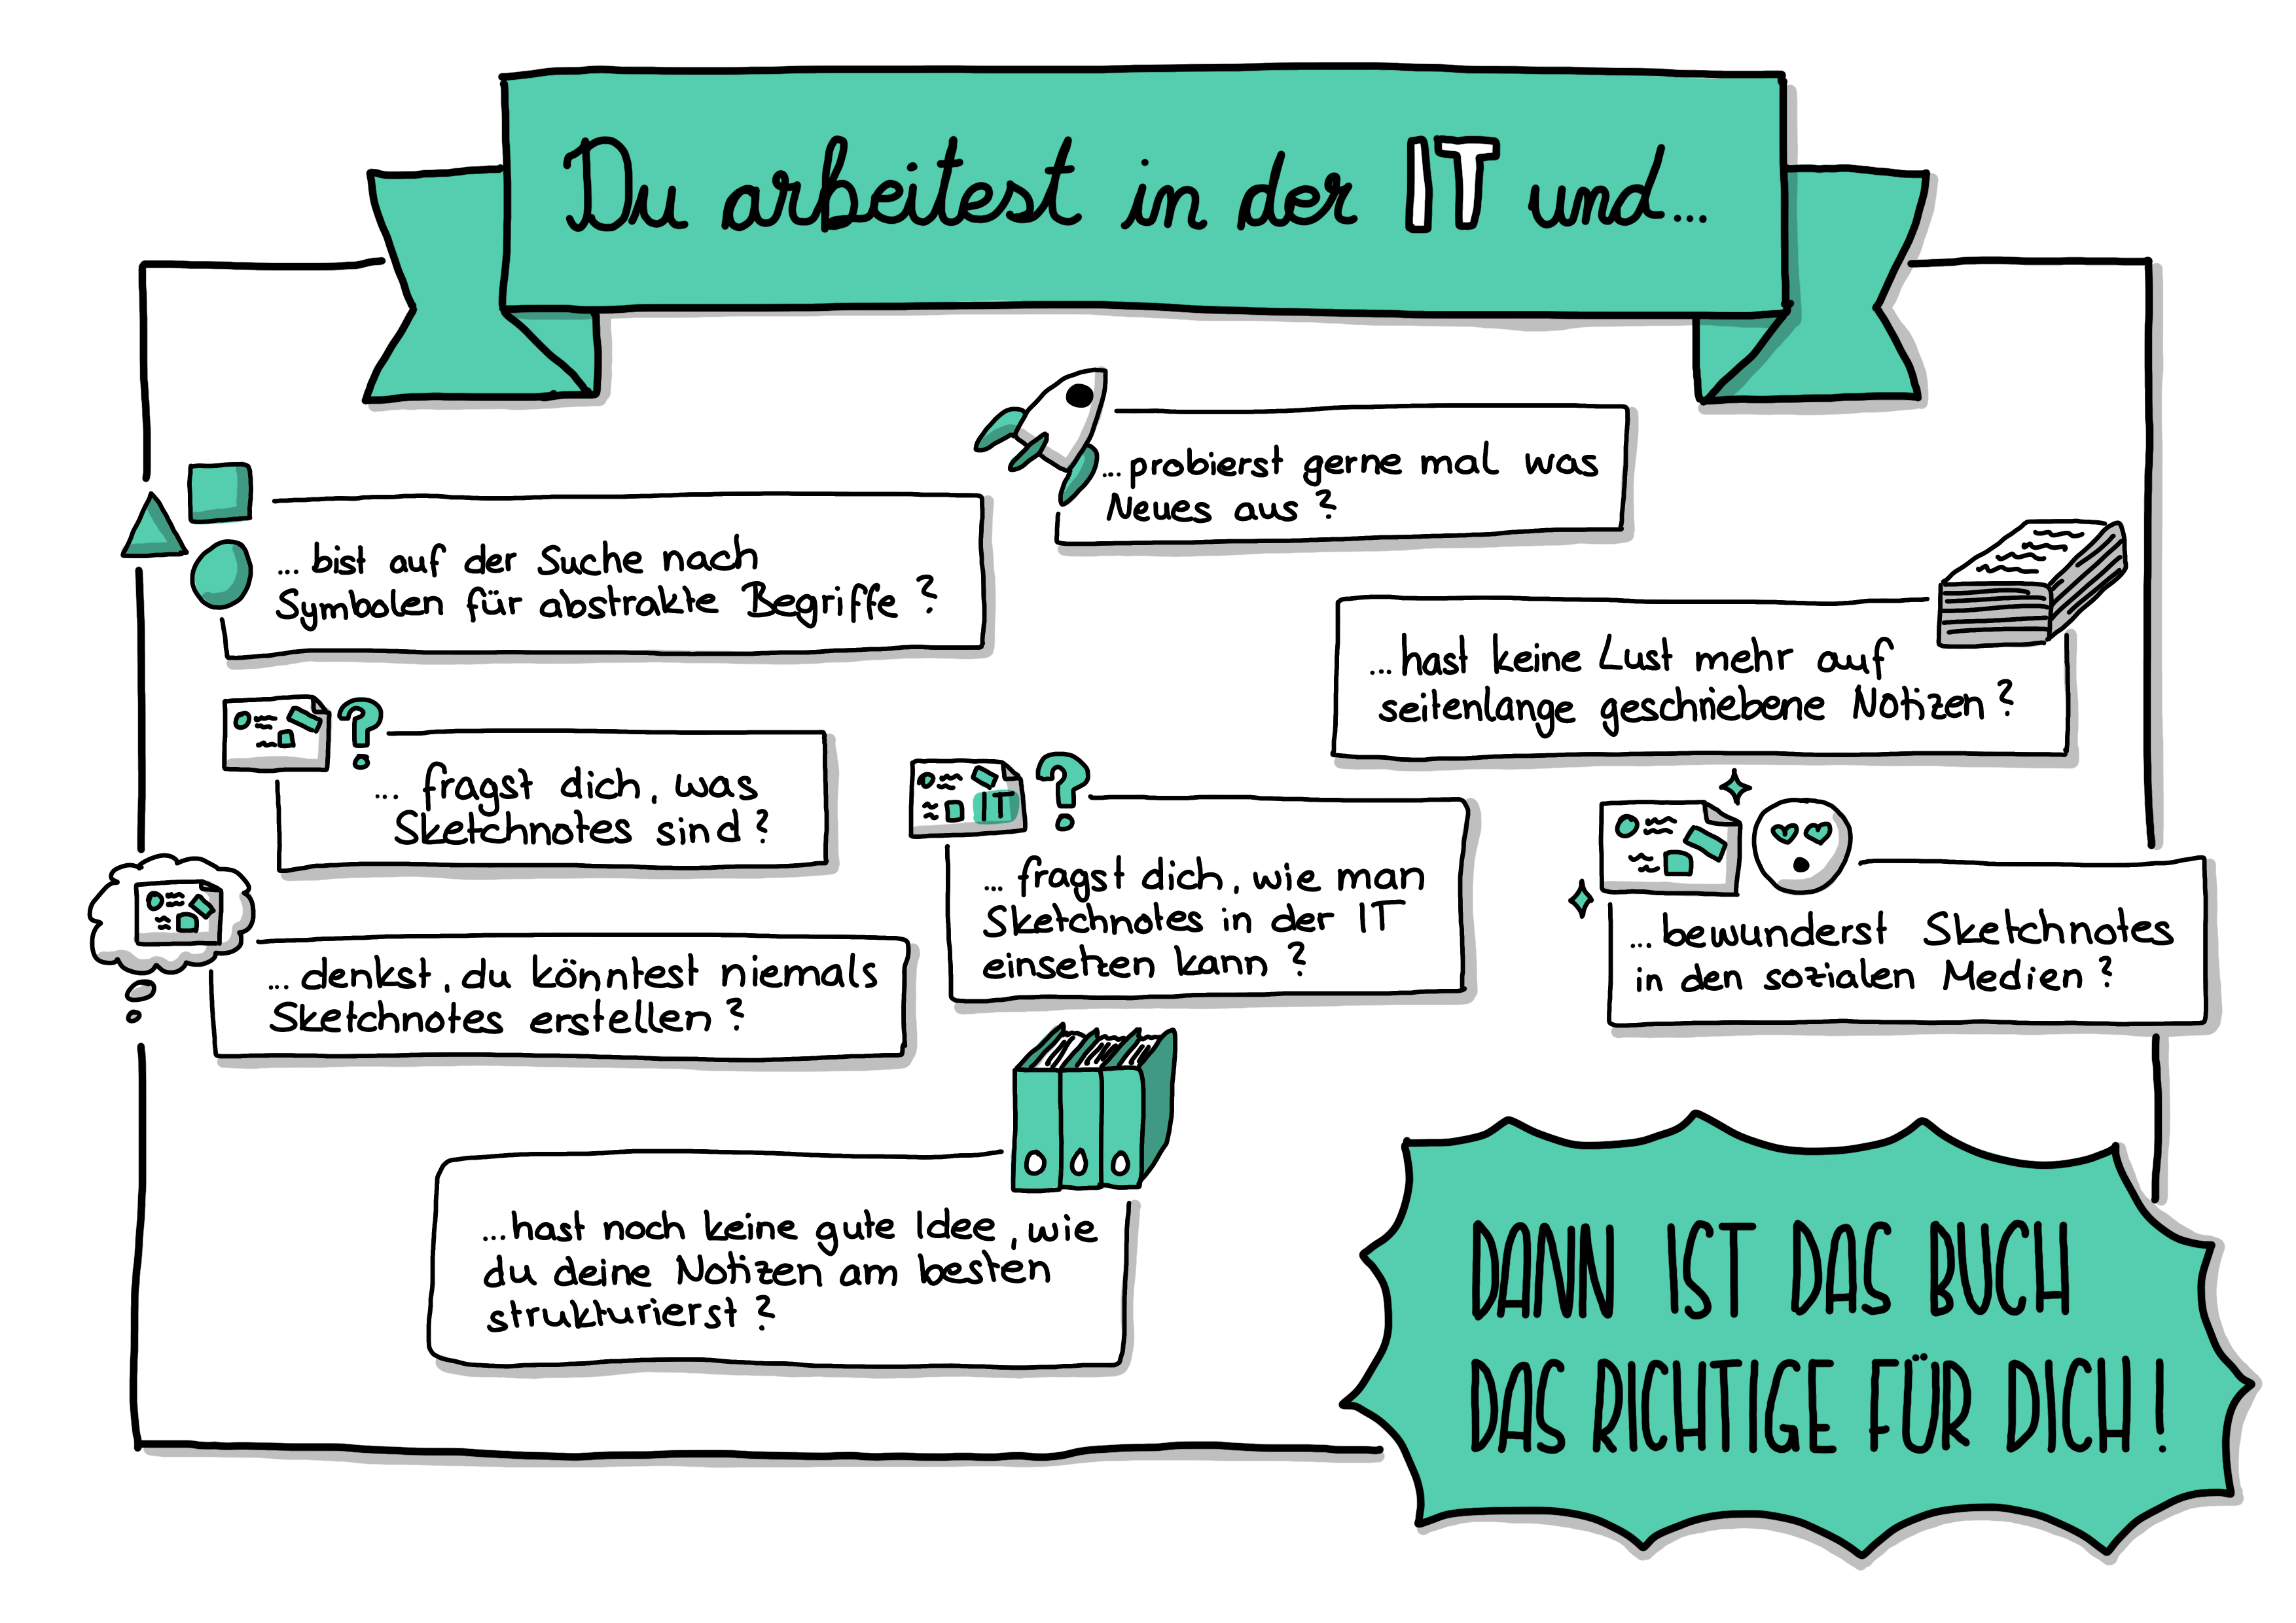 Du arbeitest in der IT und...
...probierst gerne mal was
Neues aus?
... bist auf der Suche nach
Symbolen für abstrakte Begriffe?
...hast keine Lust mehr auf
seitenlange geschriebene Notizen?
... fragst dich, was
Sketchnotes sind?
IT
... fragst dich, wie man
Sketchnotes in der IT
einsetzen kann?
...bewunderst Sketchnotes
in den sozialen Medien?
... denkst, du könntest niemals
Sketchnotes erstellen?
...hast noch keine gute Idee, wie
du deine Notizen am besten
strukturierst?
DANN IST DAS BUCH
DAS RICHTIGE FÜR DICH!